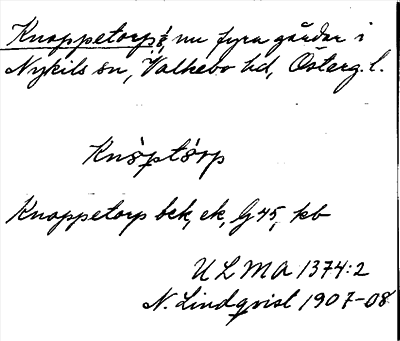 Knappetorp 1/8, nu fyra gårdar i
Nykils sn, Valkebo hd, Österg. l.
Knap̀tórp
Knappetorp bek, ek, G 45, kb
ULMA 1374:2
N. Lindqvist 1907-08